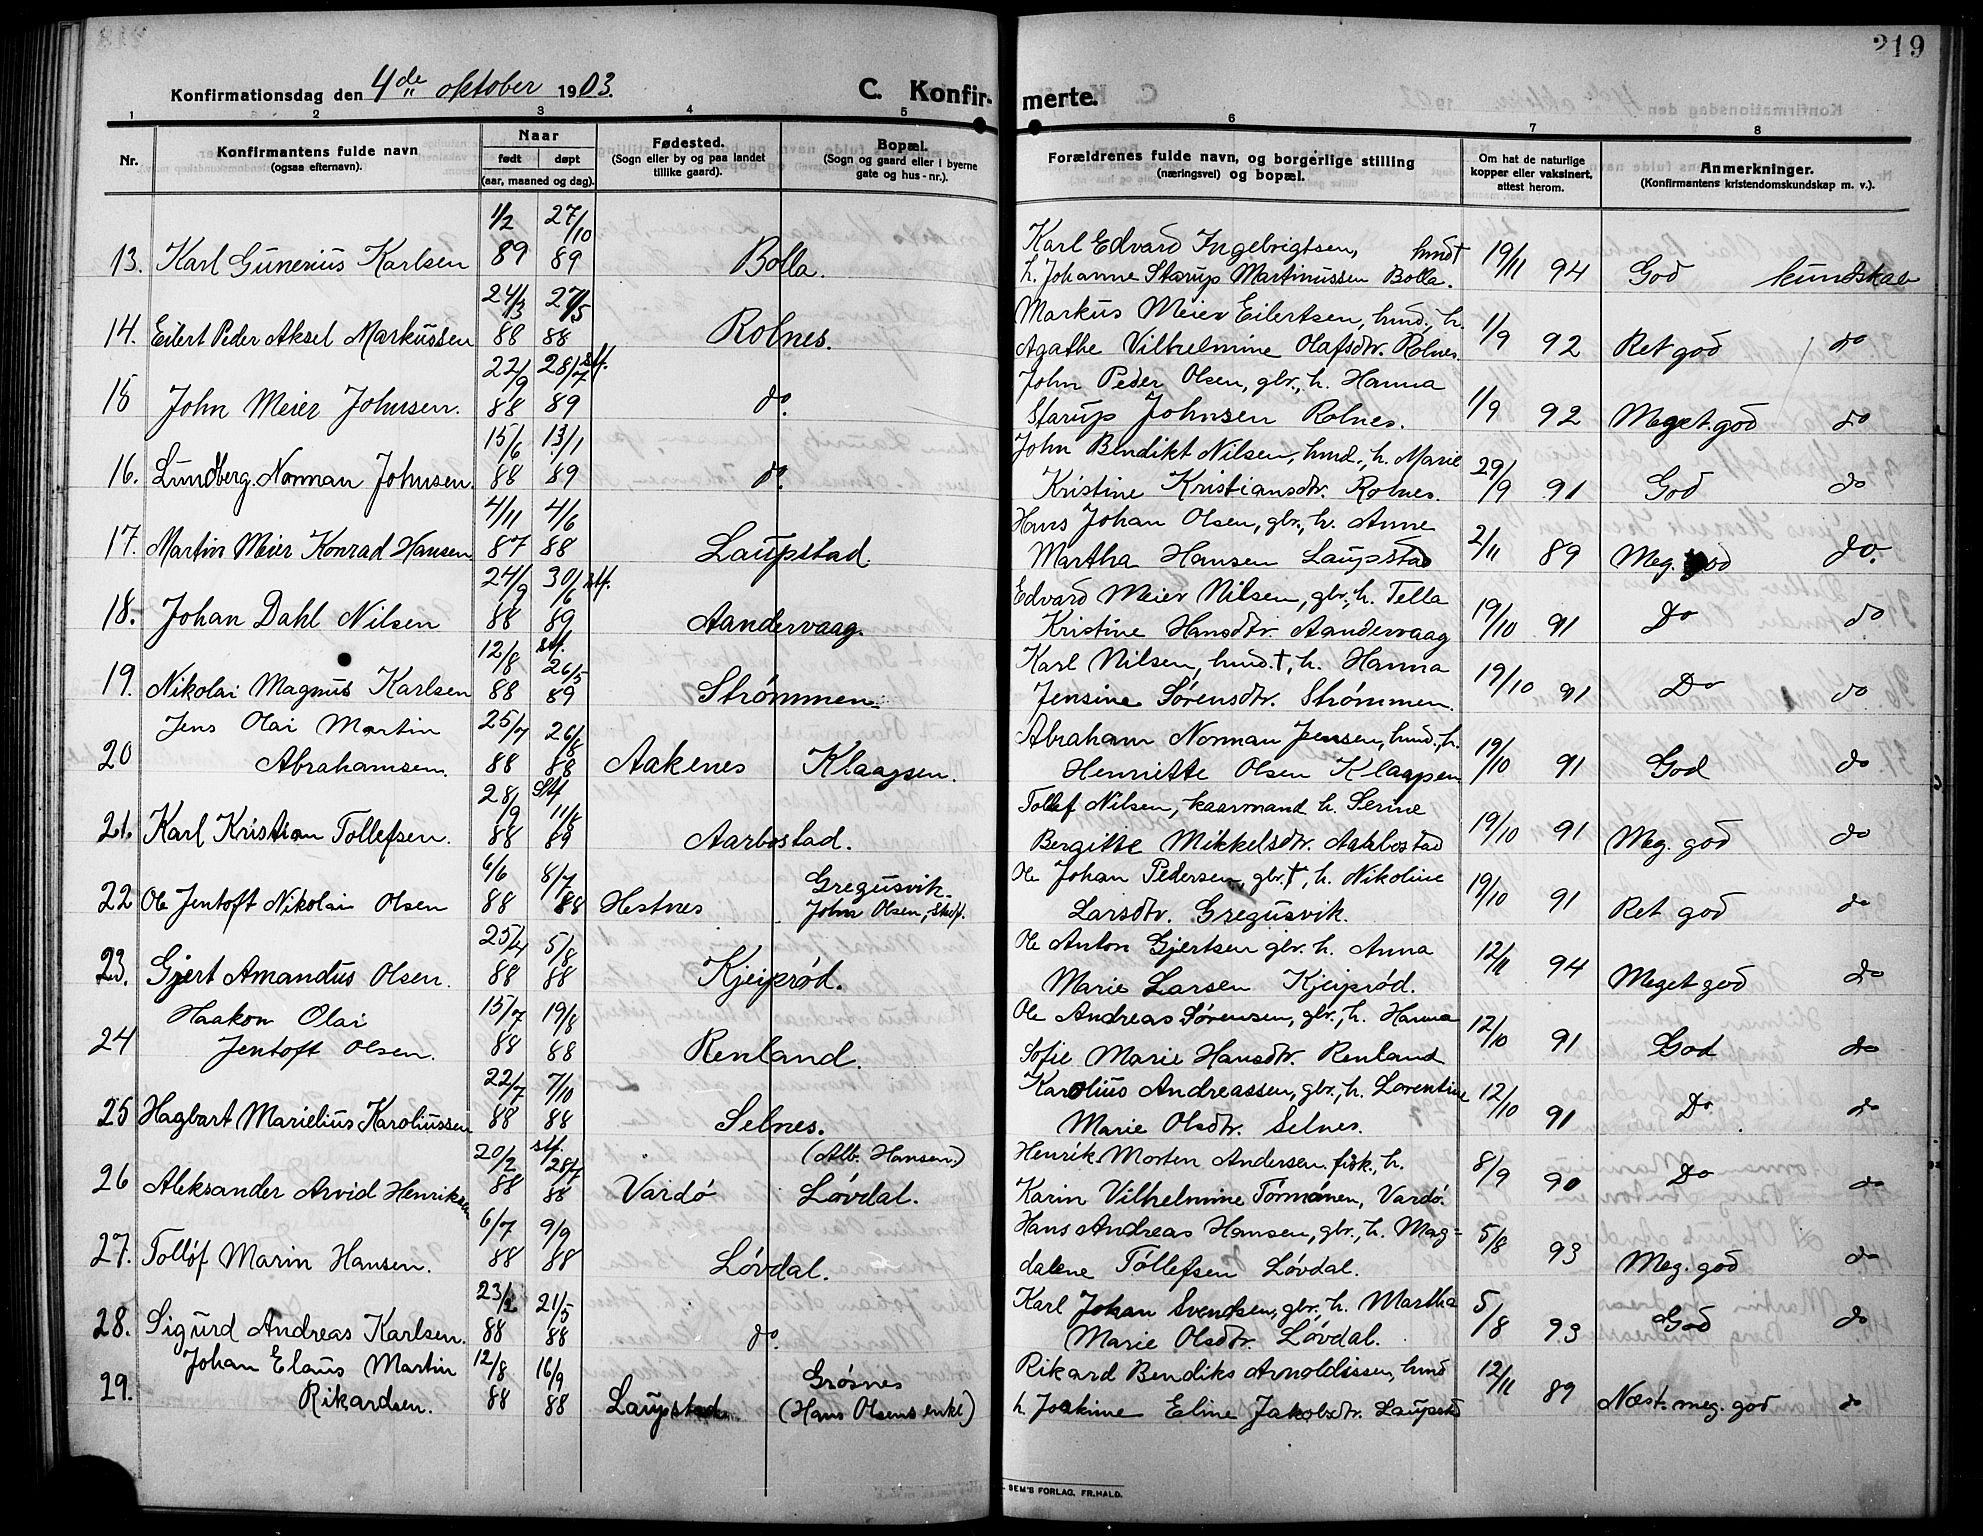 219
Konfirmationsdag den 4de oktober 1903.
C. Konfirmerte.
1 2 3 4 5 6 7 8
Nr.
Konfirmantens fulde navn
(ogsaa efternavn).
Naar
født døpt
(aar, maaned og dag).
Fødested.
(Sogn eller by og paa landet
tillike gaard).
Bopæl.
(Sogn og gaard eller i byerne
gate og hus-nr.).
Forældrenes fulde navn, og borgerlige stilling
(næringsvei) og bopæl.
Om hat de naturlige
kopper eller vaksinert,
attest herom.
Anmerkninger.
(Konfirmantens kristendomskundskap m. v.).
1/2 27/10 Karl Edvard Ingebrigtsen, hmd†
13. Karl Gunerius Karlsen 89 89 Bolla. h. Johanne Starup Martinussen Bolla. 19/11 94 God kundskab
24/3 27/5 Markus Meier Eilertsen, hmd., h.
14. Eilert Peder Aksel Markussen 88 88 Rolnes. Agathe Vilhelmine Olafsdtr. Rolnes. 1/9 92 Ret god do
22/9 28/7 stf. John Peder Olsen, gbr., h. Hanna
15 John Meier Johnsen. 88 89 do. Starup Johnsen Rolnes. 1/9 92 Meget god do
15/6 13/1 John Bendikt Nilsen, hmd., h. Marie
16. Lundberg Norman Johnsen. 88 89 do. Kristine Kristiansdtr. Rolnes. 29/9 91 God do
4/11 4/6 Hans Johan Olsen, gbr., h. Anne
17. Martin Meier Konrad Hansen 87 88 Laupstad. Martha Hansen Laupstad 2/11 89 Meg. god do.
24/9 30/6 stf. Edvard Meier Nilsen, gbr., h. Tella
18. Johan Dahl Nilsen 88 89 Aandervaag. Kristine Hansdtr. Aandervaag 19/10 91 Do do
12/8 stf. 26/5 Karl Nilsen, hmd.†, h. Hanna
19. Nikolai Magnus Karlsen 88 89 Strømmen. Jensine Sørensdtr. Strømmen. 19/10 91 Do do
Jens Olai Martin 25/7 26/8 Abraham Norman Jensen, hmd., h.
20 Abrahamsen. 88 88 Aakenes Klaapen. Henriette Olsen Klaapen 19/10 91 God do
28/9 stf 11/8 Tollef Nilsen, kaarmand h. Serine
21. Karl Kristian Tollefsen. 88 89 Aarbostad. Bergitte Mikkelsdtr. Aarbostad 19/10 91 Meg. god do
6/6 8/7 Gregusvik. Ole Johan Pedersen, gbr.†, h. Nikoline
22 Ole Jentoft Nikolai Olsen 88 88 Hestnes John Olsen, Larsdtr. Gregusvik. 19/10 91 Ret god do
25/4 5/8 Ole Anton Gjertsen gbr. h. Anna
23. Gjert Amandus Olsen. 88 88 Kjeiprød. Marie Larsen Kjeiprød. 12/11 94 Meget god do
Haakon Olai 15/7 19/8 Ole Andreas Sørensen, gbr., h. Hanna
24 Jentoft Olsen. 88 88 Renland. Sofie Marie Hansdtr. Renland 12/10 91 God do
22/7 7/10 Karolius Andreassen, gbr., h. Lorentine
25 Hagbart Marielius Karoliussen 88 88 Selnes. Marie Olsdtr. Selnes. 12/10 91 Do do
20/2 stf. 28/7 (Alb. Hansen) Henrik Morten Andersen, fisk., h.
26 Aleksander Arvid Henriksen 88 88 Vardö Løvdal. Karin Vilhelmine Törmänen, Vardö. 8/9 90 Do do
6/7 9/9 Hans Andreas Hansen, gbr., h. Mag-
27. Tolløf Marin Hansen. 88 88 Løvdal. dalene Tøllefsen Løvdal. 5/8 93 Meg. god do
23/2 21/5 Karl Johan Svendsen, gbr., h. Martha
28. Sigurd Andreas Karlsen. 88 88 do. Marie Olsdtr. Løvdal. 5/8 93 God do
Johan Elaus Martin 12/8 16/9 Grøsnes Rikard Bendiks Arnoldissen, hmd
29. Rikardsen. 88 88 Laupstad (Hans Olsens enke) h. Joakime Eline Jakobsdtr. Laupstd 12/11 89 Næst. meg. god do
SEM'S FORLAG, FR.HALD.